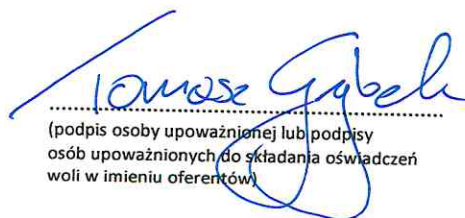 Tomasz Gąbek
(podpis osoby upoważnionej lub podpisy
osób upoważnionych do składania oświadczeń
woli w imieniu oferentów)